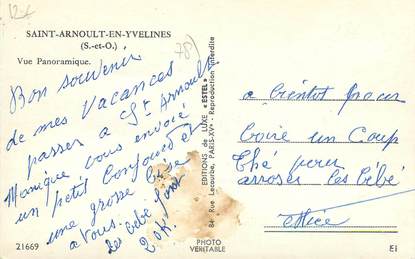 12€
SAINT-ARNOULT-EN-YVELINES
(S.-et-O.)
Vue Panoramique.
78)
Bon souvenir
de mes Vacances
passer a St Arnoult
Monique vous envoie
un petit bonjour et
une grosse bise
a Vous.
les bébé font
21669
EDITIONS de LUXE "ESTEL"
84, Rue Lecourbe, PARIS-XV - Reproduction interdite
PHOTO
VÉRITABLE
a bientot pour
boire un Coup
thé pour
arroser les bébé
EI